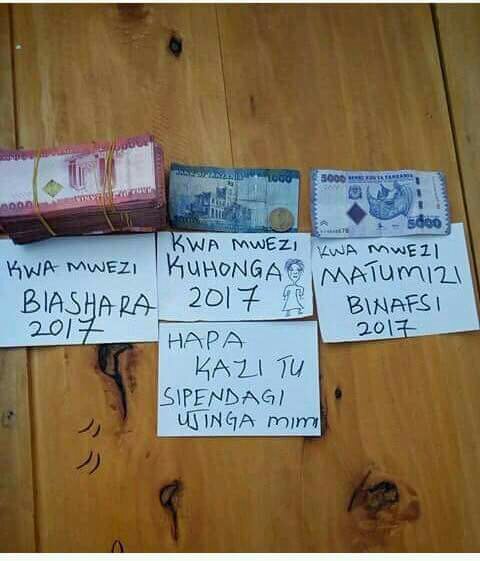 1000
5000 BENKI KUU YA TANZANIA
5000
KWA MWEZI
BIASHARA
2017
KWA MWEZI
KUHONGA
2017
KWA MWEZI
MATUMIZI
BINAFSI
2017
HAPA
KAZI TU
SIPENDAGI
UJINGA MIMI